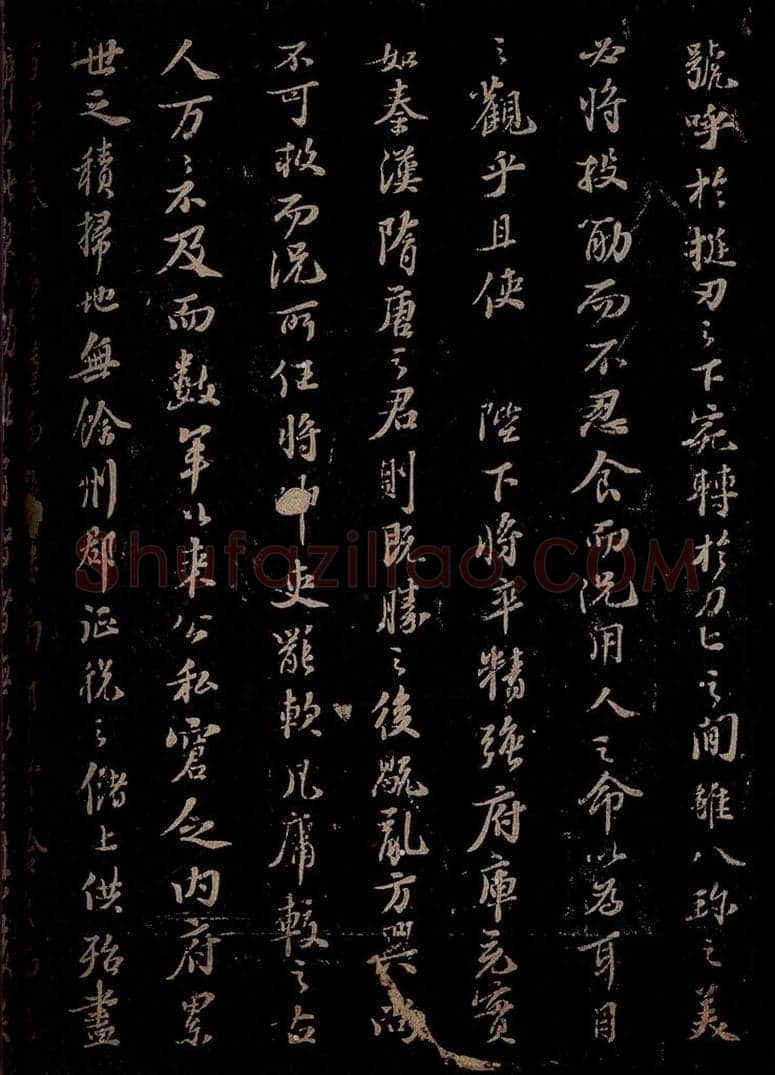 號呼於挺刃之下宛轉於刀匕之間雖八珍之美
必將投筯而不忍食而況用人之命以為耳目
之觀乎且使 陛下將卒精強府庫充實
如秦漢隋唐之君則既勝之後旤亂方興尚
不可救而況所任將吏罷軟凡庸較之古
人万々不及而數年以来公私窘乏內府累
世之積掃地無餘州郡征稅之儲上供殆盡
Shufaziliao.COM